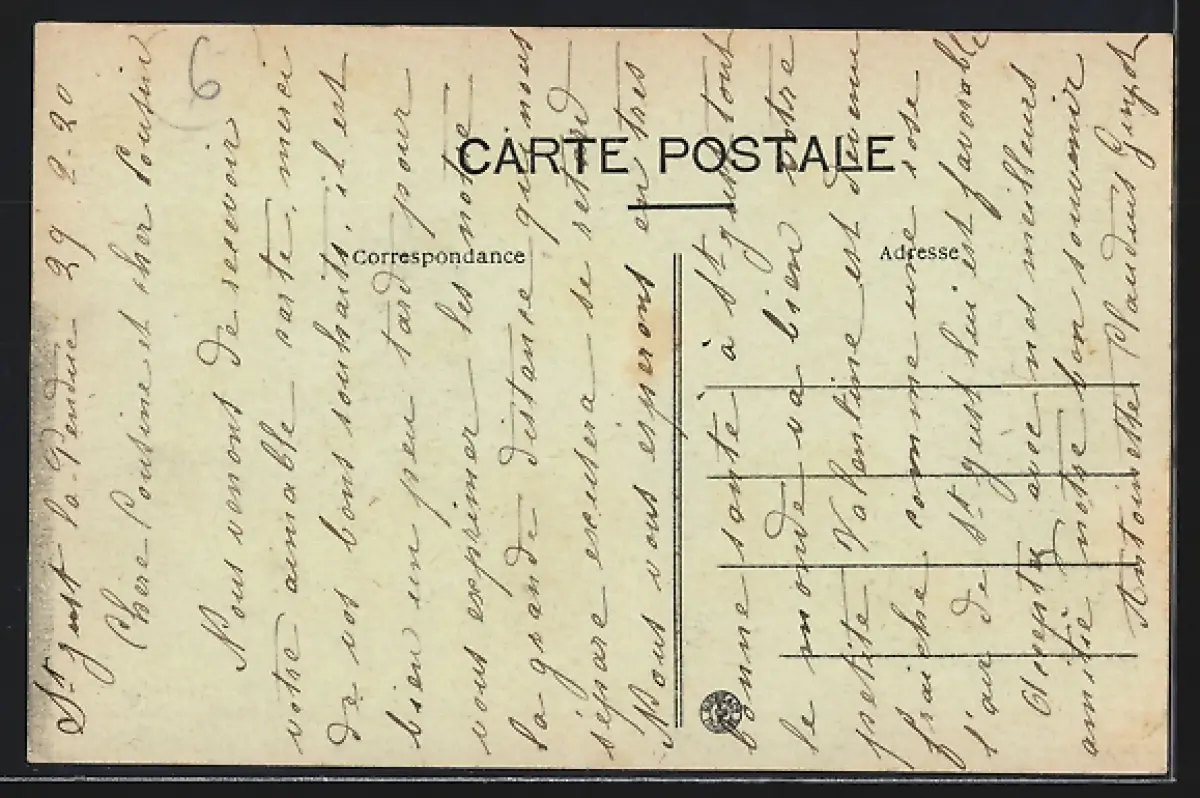 CARTE POSTALE
Correspondance
Adresse
6
St. Just la-Pendue 29-2-20
Chère Cousine et cher Cousin
Nous venons de recevoir
votre aimable carte, merci
de vos bons souhaits, il est
bien un peu tard pour
vous exprimer les notre
la grande distance qui nous
sépare excusera se retard
Nous vous esperons en très
bonne santé à St. Just tout
le monde va bien votre
petite Valentine est devenu
fraiche comme une rose
l'air de St. Just lui est favorable
Acceptez avec nos meilleurs
amitié notre bon souvenir
Antoinette Claudius